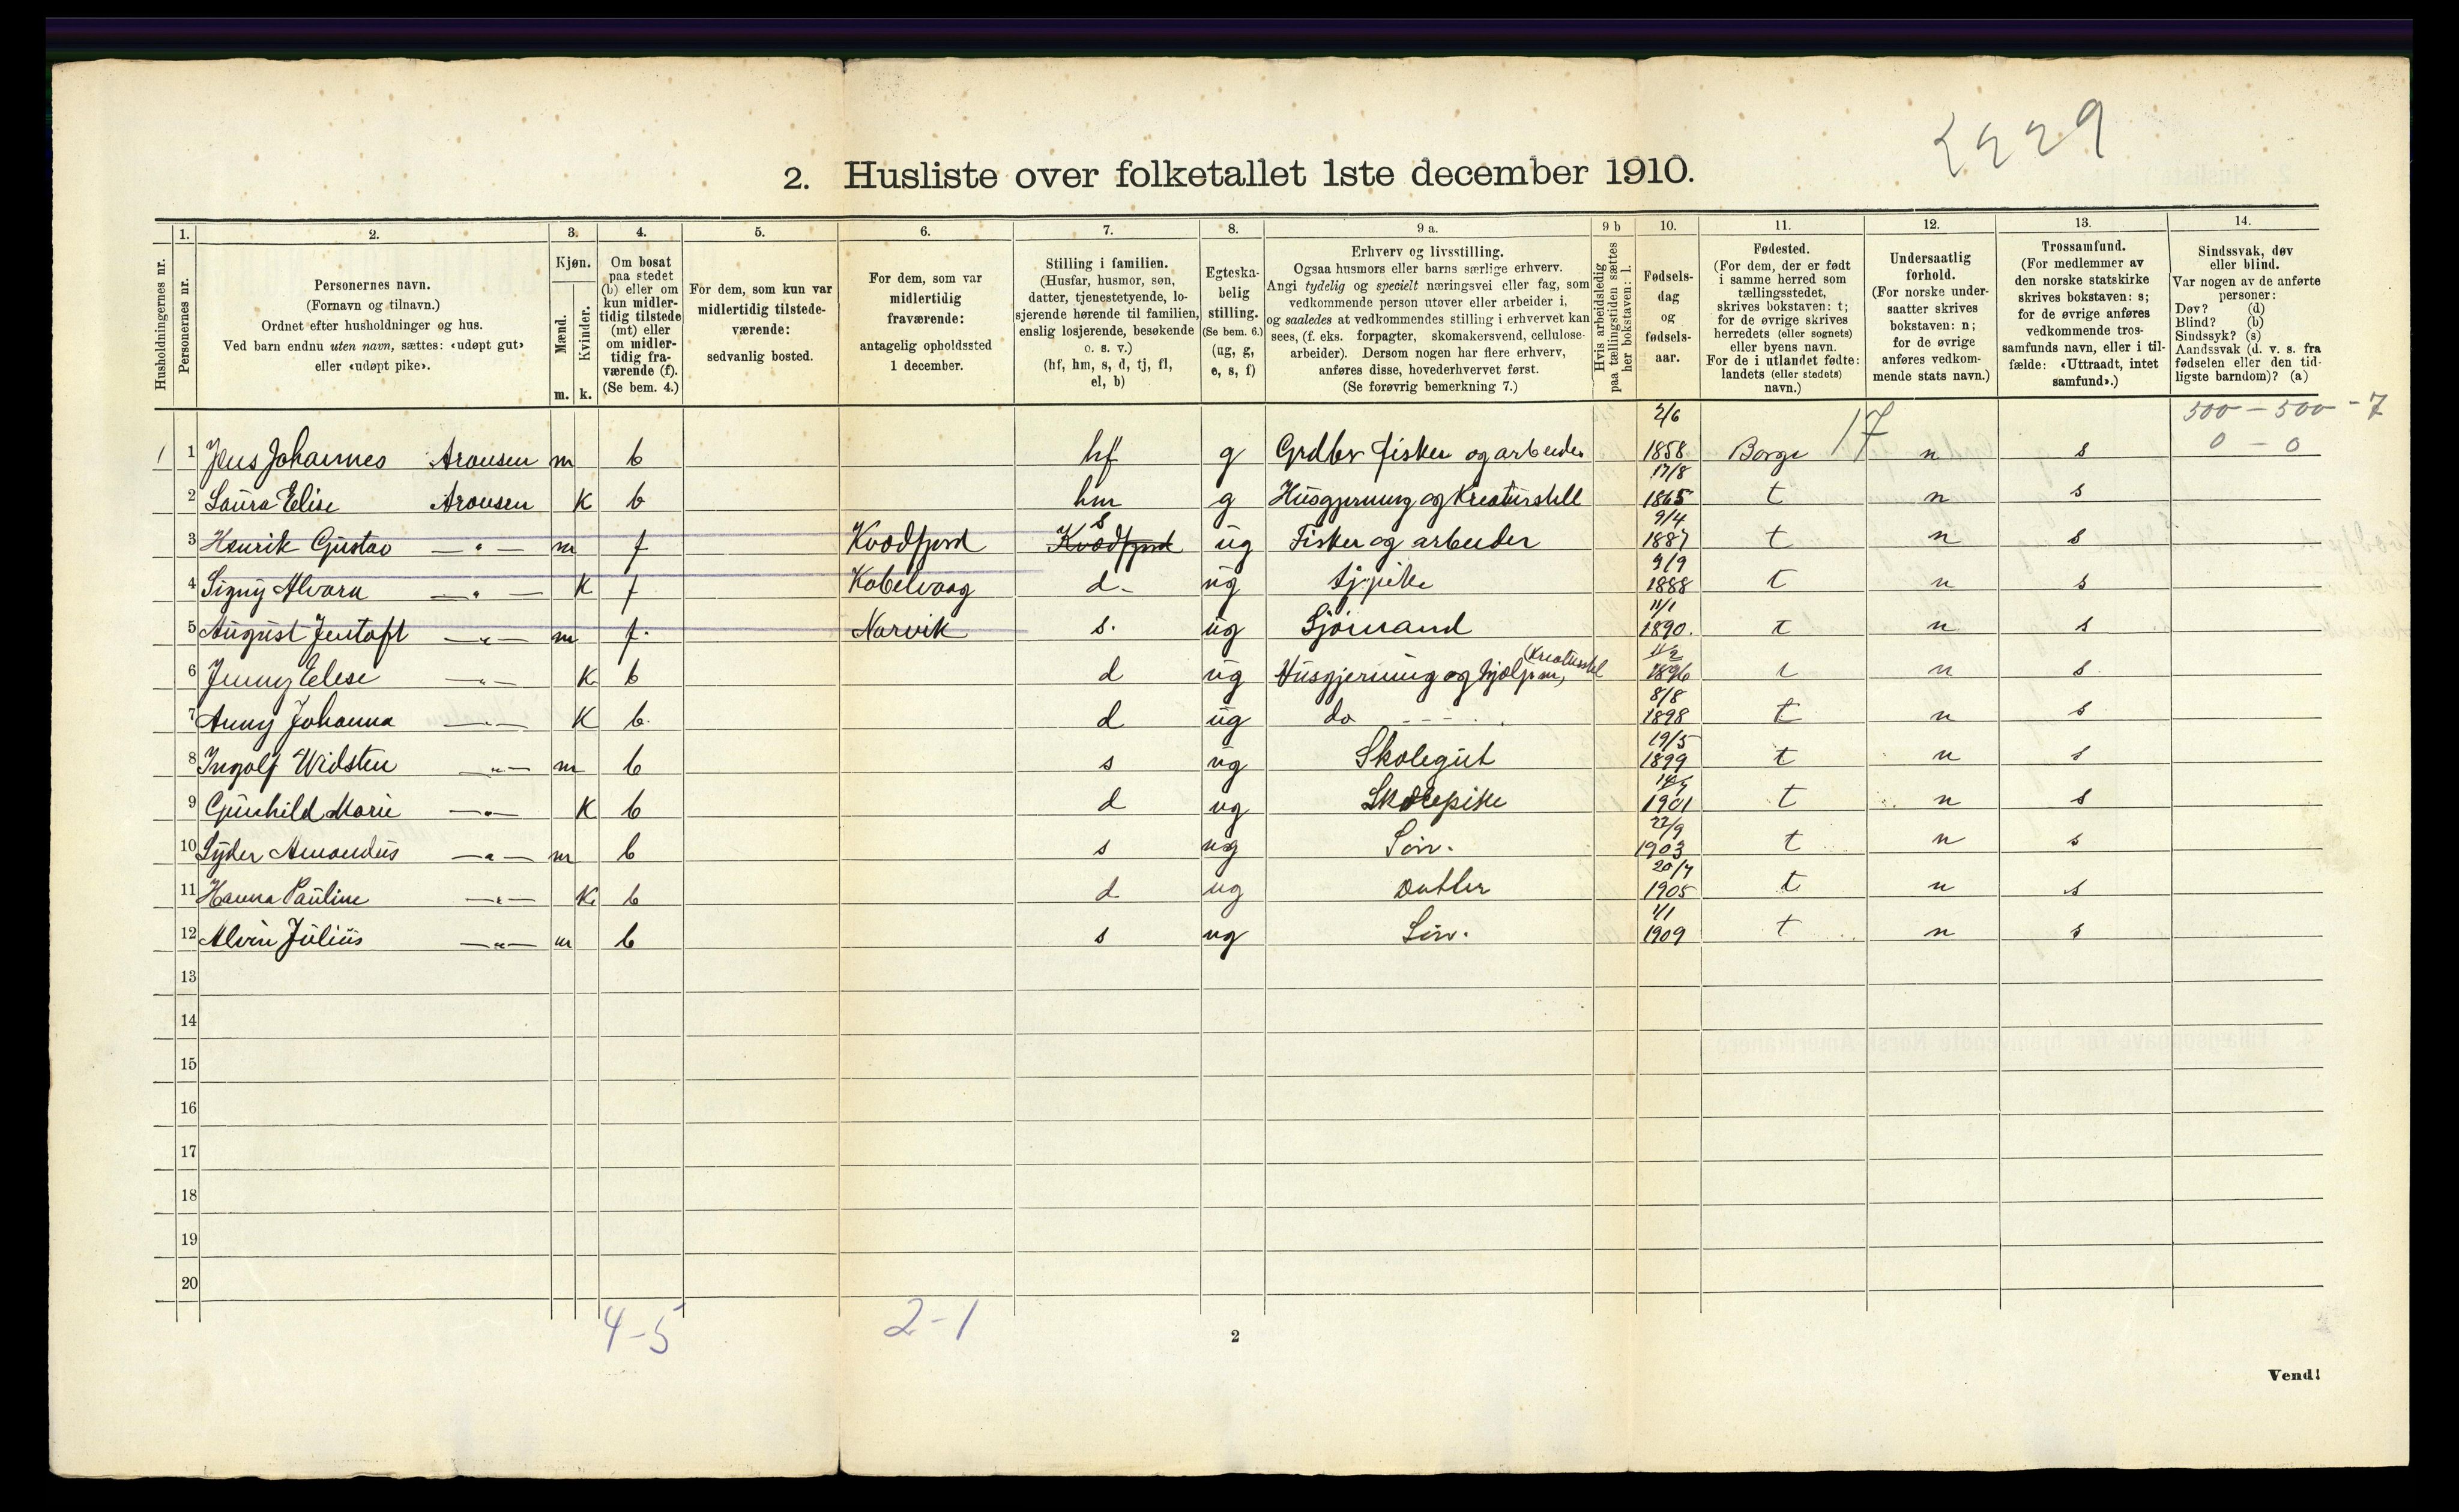 2229
2. Husliste over folketallet 1ste december 1910.
1. 2. 3. 4. 5. 6. 7. 8. 9 a. 9 b 10. 11. 12. 13. 14.
Husholdningernes nr.
Personernes nr.
Personernes navn.
(Fornavn og tilnavn.)
Ordnet efter husholdninger og hus.
Ved barn endnu uten navn, sættes: «udøpt gut»
eller «udøpt pike».
Kjøn.
Mænd.
Kvinder.
m. k.
Om bosat
paa stedet
(b) eller om
kun midler-
tidig tilstede
(mt) eller
om midler-
tidig fra-
værende (f).
(Se bem. 4.)
For dem, som kun var
midlertidig tilstede-
værende:
sedvanlig bosted.
For dem, som var
midlertidig
fraværende:
antagelig opholdssted
1 december.
Stilling i familien.
(Husfar, husmor, søn,
datter, tjenestetyende, lo-
sjerende hørende til familien,
enslig losjerende, besøkende
o. s. v.)
(hf, hm, s, d, tj, fl,
el, b)
Egteska-
belig
stilling.
(Se bem. 6.)
(ug, g,
e, s, f)
Erhverv og livsstilling.
Ogsaa husmors eller barns særlige erhverv.
Angi tydelig og specielt næringsvei eller fag, som
vedkommende person utøver eller arbeider i,
og saaledes at vedkommendes stilling i erhvervet kan
sees, (f. eks. forpagter, skomakersvend, cellulose-
arbeider). Dersom nogen har flere erhverv,
anføres disse, hovederhvervet først.
(Se forøvrig bemerkning 7.)
Hvis arbeidsledig
paa tællingstiden sættes
her bokstaven: l.
Fødsels-
dag
og
fødsels-
aar.
Fødested.
(For dem, der er født
i samme herred som
tællingsstedet,
skrives bokstaven: t;
for de øvrige skrives
herredets (eller sognets)
eller byens navn.
For de i utlandet fødte:
landets (eller stedets)
navn.)
Undersaatlig
forhold.
(For norske under-
saatter skrives
bokstaven: n;
for de øvrige
anføres vedkom-
mende stats navn.)
Trossamfund.
(For medlemmer av
den norske statskirke
skrives bokstaven: s;
for de øvrige anføres
vedkommende tros-
samfunds navn, eller i til-
fælde: «Uttraadt, intet
samfund».)
Sindssvak, døv
eller blind.
Var nogen av de anførte
personer:
Døv? (d)
Blind? (b)
Sindssyk? (s)
Aandssvak (d. v. s. fra
fødselen eller den tid-
ligste barndom)? (a)
500 - 500 - 7
0 - 0
1 1 Jens Johannes Aronsen m b hf g Grdbr fisker og arbeider 2/6 1858 Borge 17 n s
2 Laura Elise Aronsen K b hm g Husgjerning og Kreaturstell 17/8 1865 t n s
3 Henrik Gustav — " — m f Kvædfjord Kvædfjord s ug Fisker og arbeider 9/4 1887 t n s
4 Signy Alvara — " — K f Kabelvaag d- ug tj.pike 9/9 1888 t n s
5 August Jentoft — " — m f. Narvik s. ug Sjømand 11/1 1890. t n s
6 Jenny Elese — " — K b d ug Husgjerning og hjælper m, Kreaturstel 11/2 1896 t n s
7 Anny Johanna — " — K b. d ug do - - - 8/8 1898 t n s
8 Ingolf Widsten — " — m b s ug Skolegut 19/5 1899 t n s
9 Gunhild Marie — " — K b d ug Skolepike 1901 t n s
10 Lyder Amandus — " — m b s ug Søn. 22/9 1903 t n s
11 Hanna Pauline — " — K b d ug Datter 20/7 1905 t n s
12 Alvin Julius — " — m b s ug Søn. 1/1 1909 t n s
13
14
15
16
17
18
19
20
4-5 2-1
2
Vend!